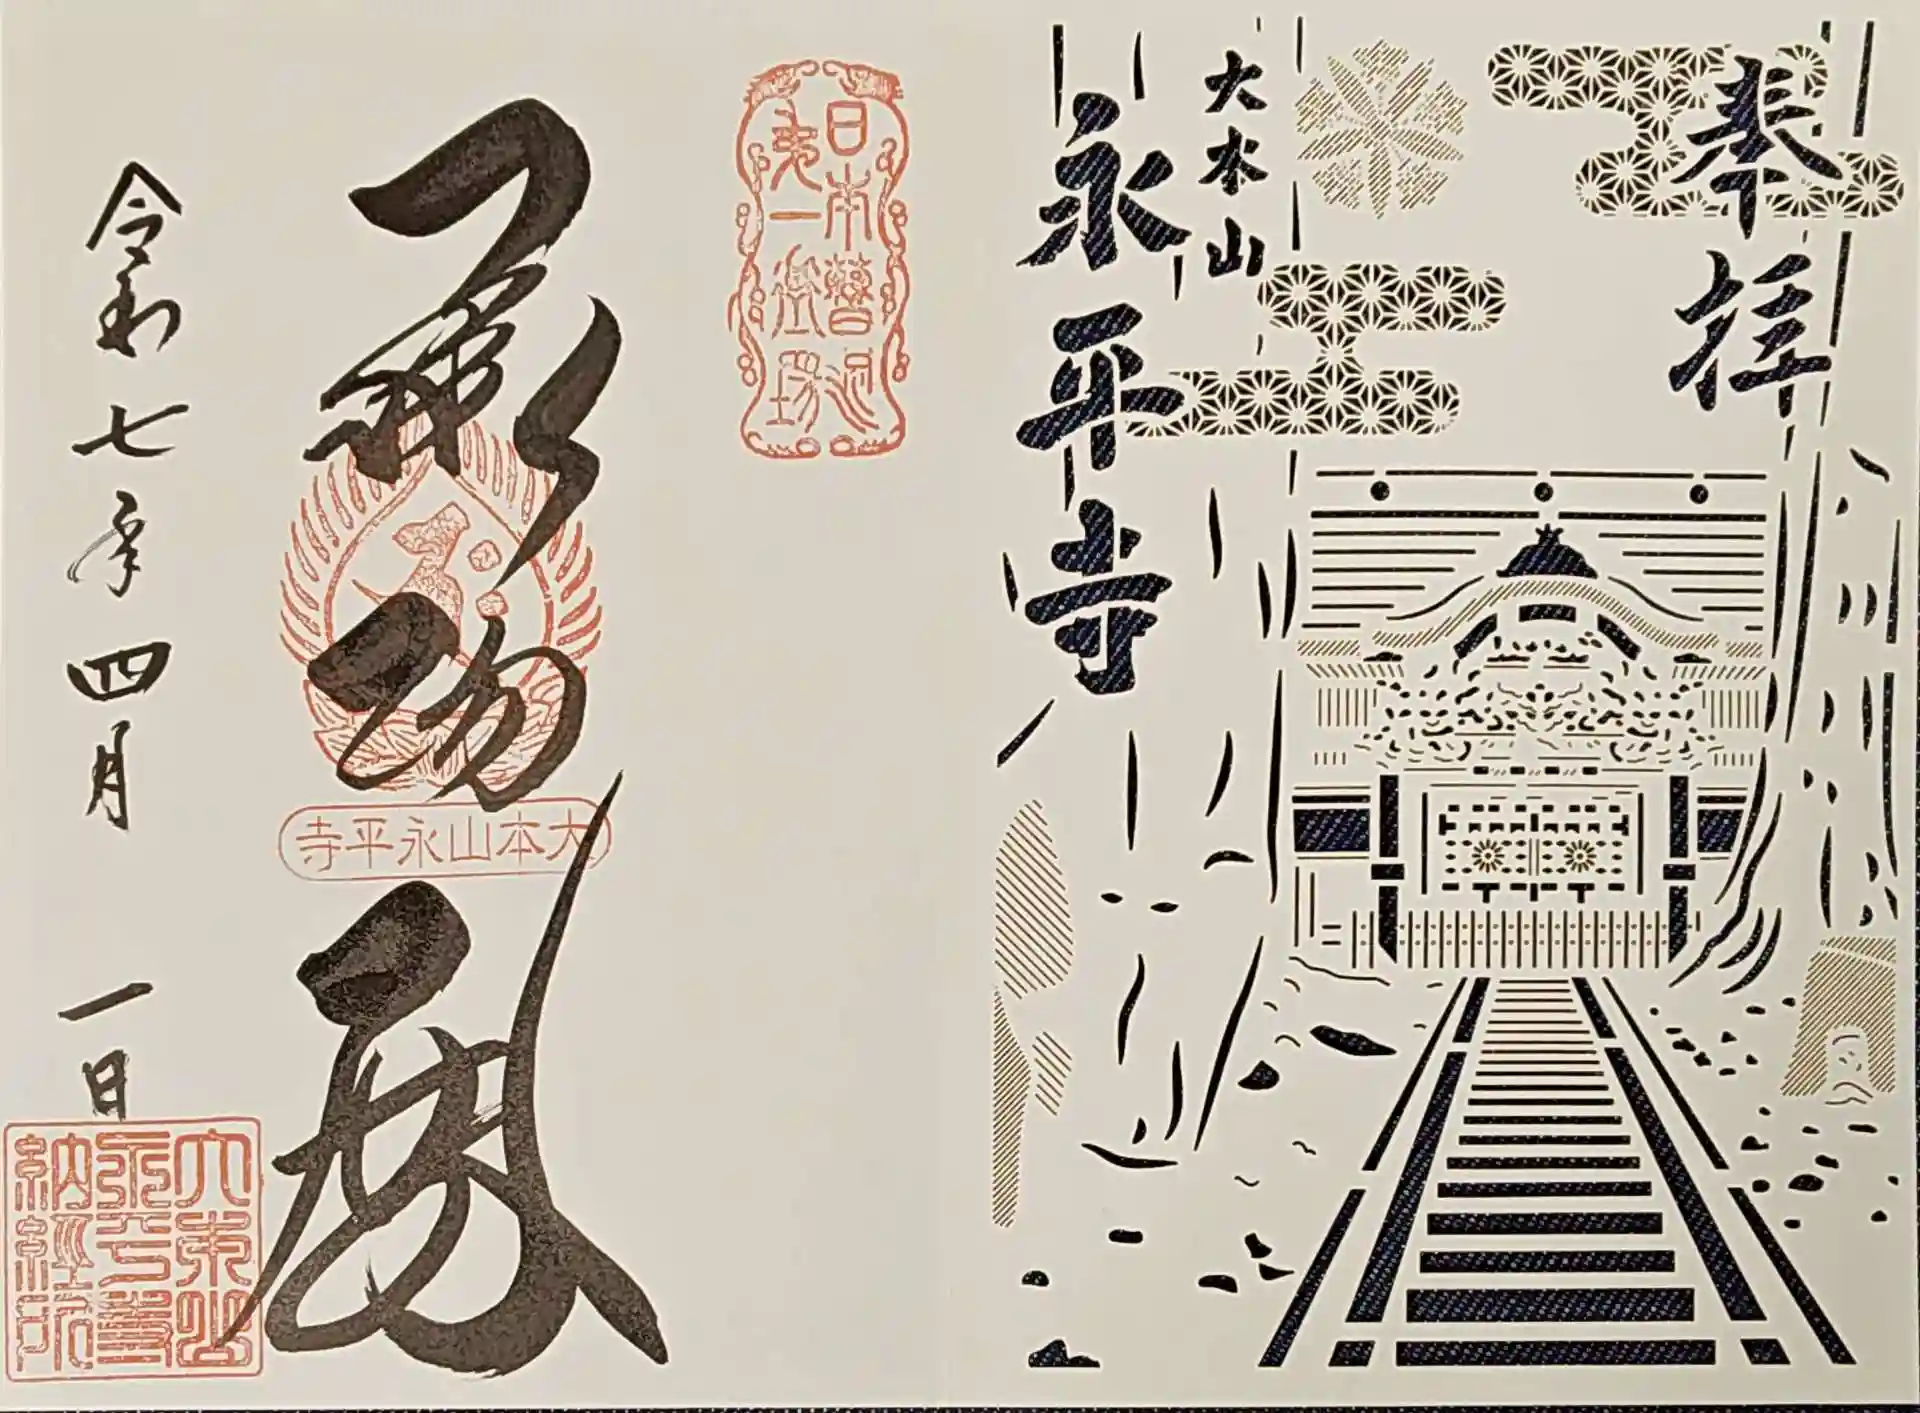 奉拝
大本山
永平寺
日本曹洞
第一道場
承陽殿
大本山永平寺
令和七年四月一日
大本山
永平寺
納経所